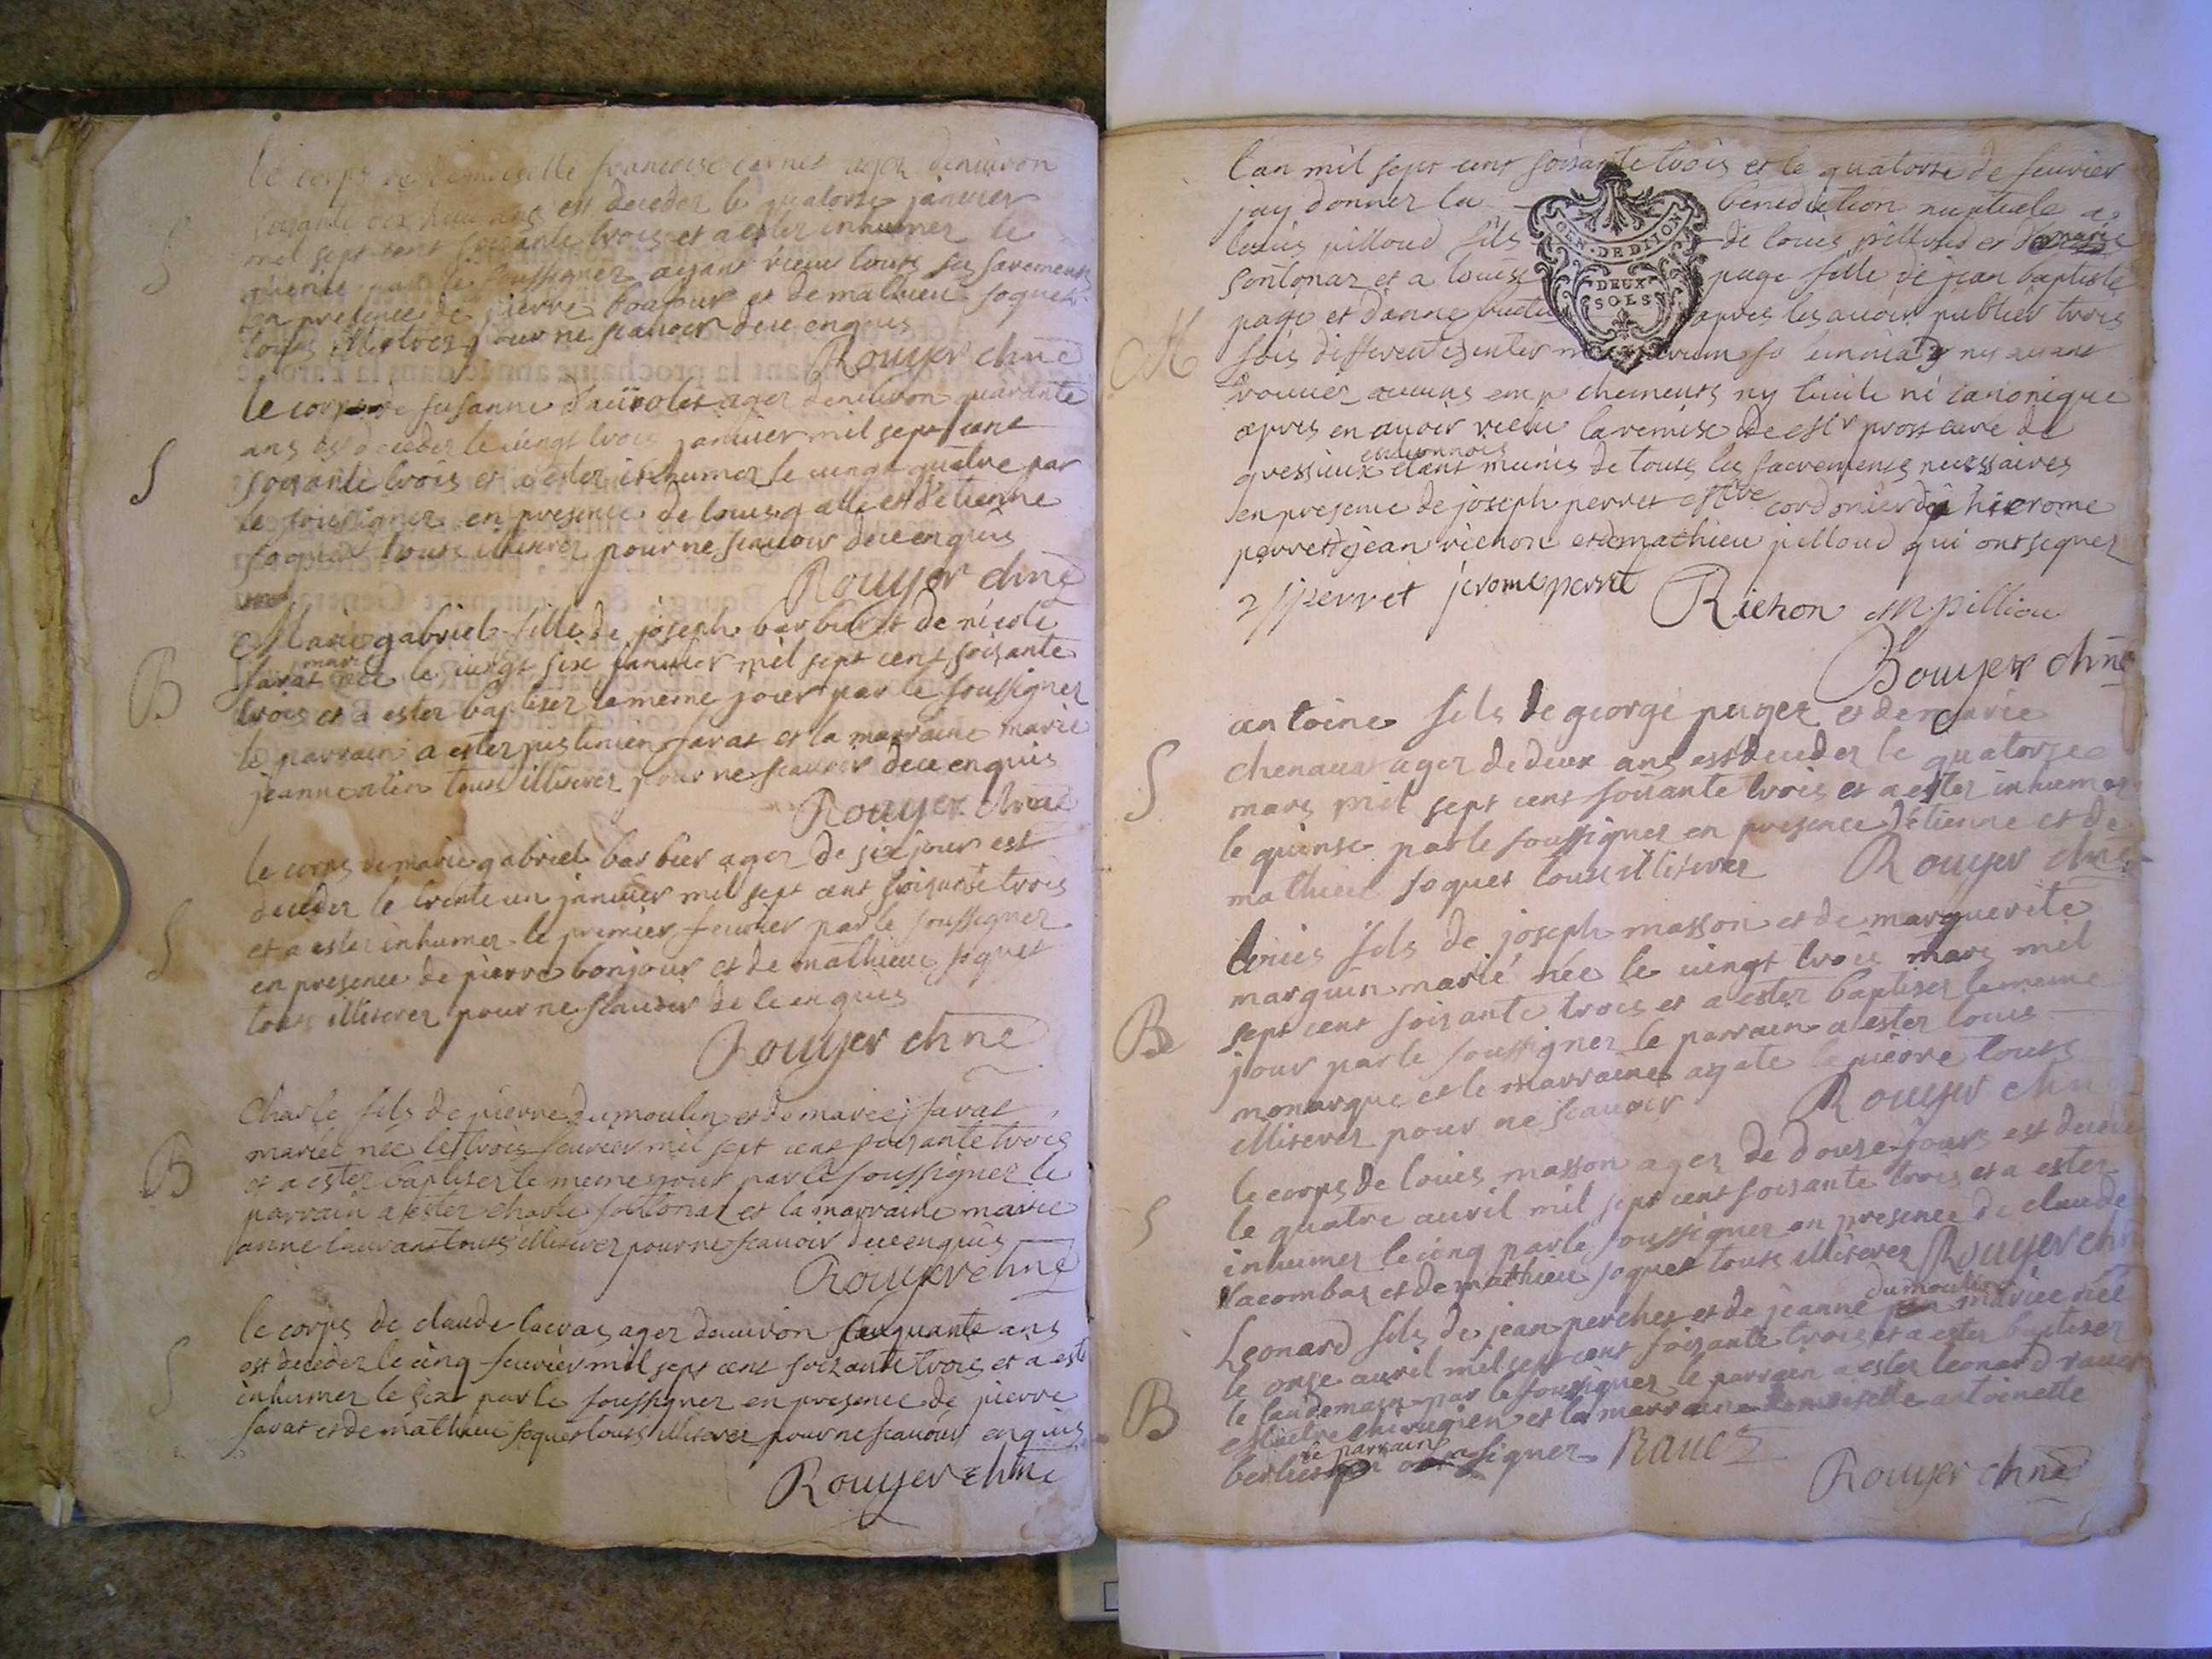 le corps de demoiselle francoise carnet agez denuiron
soisante dix huit ans est deceder le quatorse janvier
mil sept cent soisante trois et a ester inhumer le
quinse par le soussigner ayant recu touts ses sacrements
en presence de pierre bonjour et de mathieu soquet
touts illiterez pour ne scauoir dece enquis
Rouyer chne
S
le corps de susanne ager denuiron quarante
ans est deceder le uingt trois januier mil sept cent
soisante trois et a ester inhumer le uingt quatre par
le soussigner en presence de louis galle et detienne
soquet touts illiterez pour ne scauoir dece enquis
Rouyer chne
S
Marie gabriel fille de joseph barbier et de nicole
farat marié née le uingt six januier mil sept cent soisante
trois et a ester baptiser le meme jour par le soussigner
le parrain a ester justinien farat et la marraine marie
jeanne touts illiterez pour ne scauoir dece enquis
Rouyer chne
B
le corps de marie gabriel barbier ager de six jour est
deceder le trente un januier mil sept cent soisante trois
et a ester inhumer le premier feurier par le soussigner
en presence de pierre bonjour et de mathieu soquet
touts illiterez pour ne scauoir de ce enquis
Rouyer chne
S
Charle fils de pierre dumoulin et de marie farat
mariée née le trois feurier mil sept cent soisante trois
et a ester baptiser le meme jour par le soussigner le
parrain a ester charle sontonaz et la marraine marie
anne touts illiterez pour ne scauoir dece enquis
Rouyer chne
B
le corps de claude ager denuiron sinquante ans
est deceder le cinq feurier mil sept cent soisante trois et a este
inhumer le six par le soussigner en presence de pierre
farat et de mathieu soquet touts illiterez pour ne scauoir enquis
Rouyer chne
S
l'an mil sept cent soisante trois et le quatorse de feurier
jay donner la benediction nuptiale a
louis pilloud fils de louis pilloud et de marie
sontonaz et a louise page fille de jean baptiste
page et danne apres les auoir publier trois
fois differentes ny ayant
trouuer aucuns empechements ny ciuile ni canonique
apres en auoir recu la remise de curé de
gressieux etant munis de touts les sacrements necessaires
en presence de joseph perret cordonier de hierome
perret de jean richon et de mathieu pilloud qui ont signer
J perret jerome perret Richon m pilliou
Rouyer chne
M
GEN. DE DIJON
DEUX
SOLS
antoine fils de george puget et de marie
chenaua ager de deux ans est deceder le quatorse
mars mil sept cent soisante trois et a ester inhumer
le quinse par le soussigner en presence detienne et de
mathieu soquet touts illiterez Rouyer chne
S
louis fils de joseph masson et de marguerite
marguin marié née le uingt trois mars mil
sept cent soisante trois et a ester baptiser le meme
jour par le soussigner le parrain a ester louis
monarque et le marraine agate la pierre touts
illiterez pour ne scauoir Rouyer chne
B
le corps de louis masson ager de douse jours est deceder
le quatre auril mil sept cent soisante trois et a ester
inhumer le cinq par le soussigner en presence de claude
lacombaz et de mathieu soquet touts illiterez Rouyer chne
S
Leonard fils de jean perchet et de jeanne dumoulin mariée née
le onze auril mil sept cent soisante trois et a ester baptiser
le landemain par le soussigner le parrain a ester leonard
chirugien et la marraine demoiselle antoinette
le parrain a signer
Rouyer chne
B